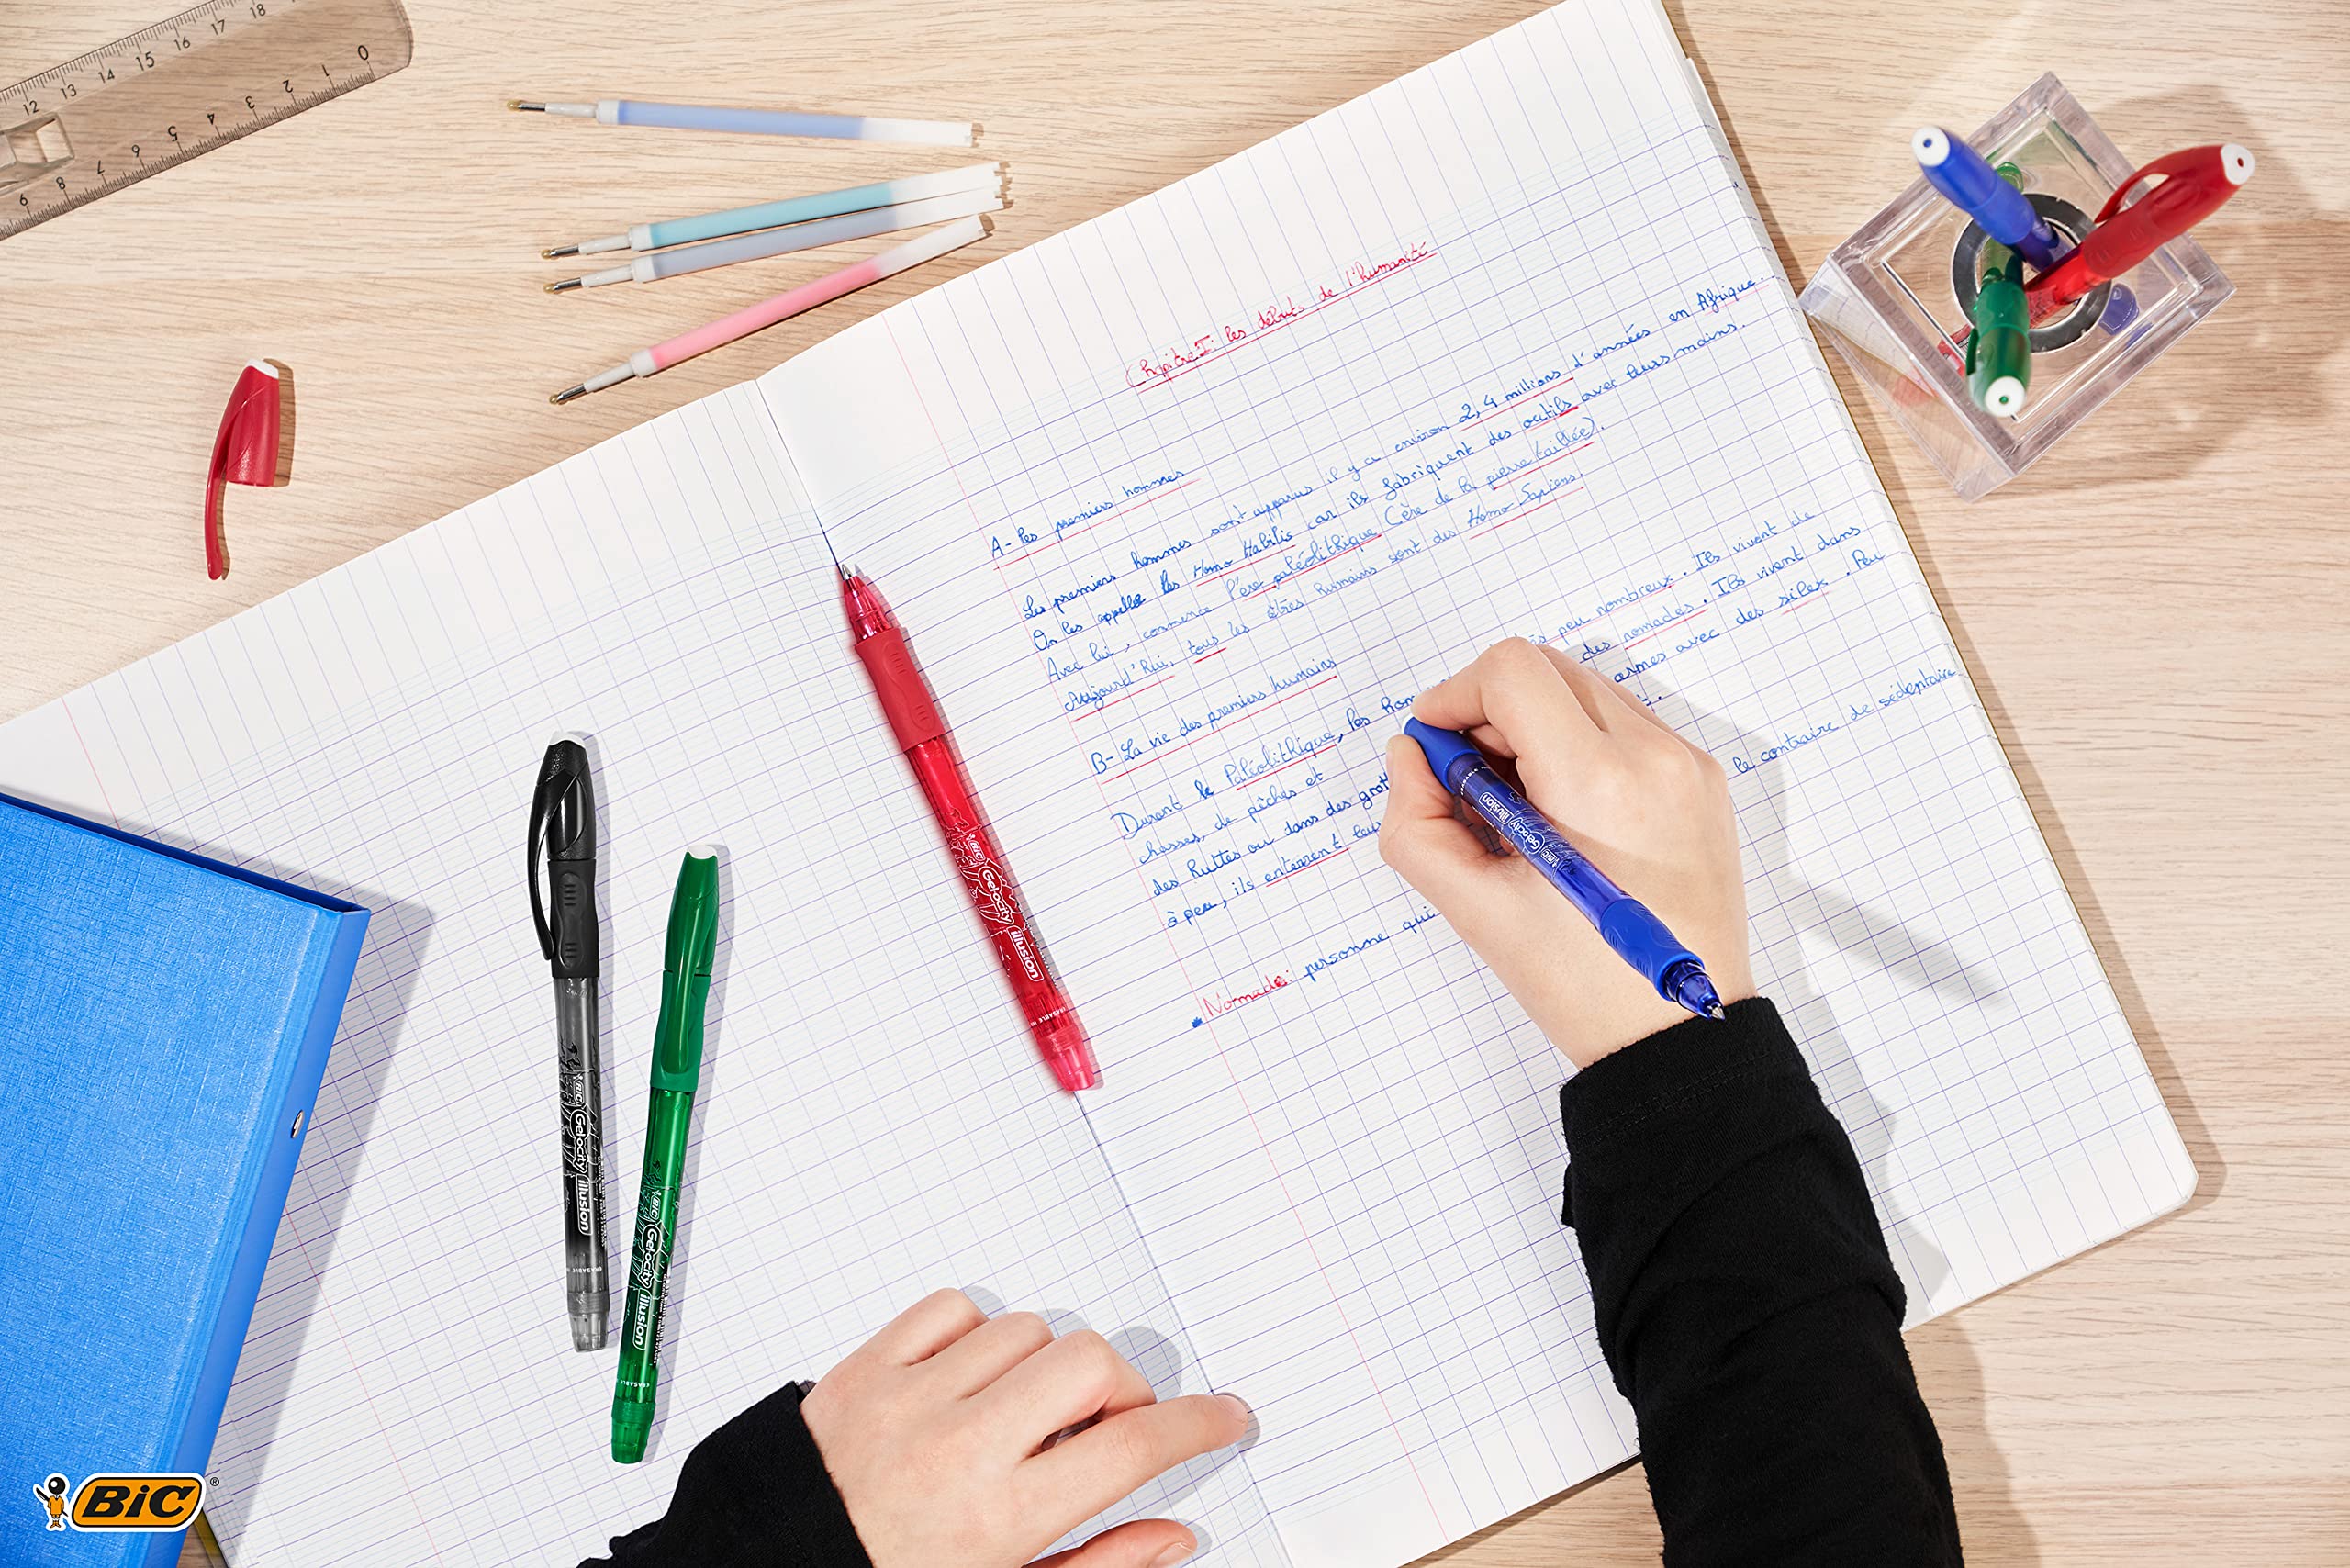 Chapitre I: les débuts de l'humanité
A- les premiers hommes
Les premiers hommes sont apparus il y a environ 2,4 millions d'années en Afrique.
On les appelle les Homo Habilis car ils fabriquent des outils avec leurs mains.
Avec lui, commence l'ère paléolithique (ère de la pierre taillée).
Aujourd'hui, tous les êtres humains sont des Homo Sapiens.
B- La vie des premiers humains
Durant le Paléolithique, les hom très peu nombreux. Ils vivent de
chasses, de pêches et des nomades. Ils vivent dans
des huttes ou dans des grott armes avec des silex. Peu
à peu, ils enterrent leurs
Nomade: personne qui le contraire de sédentaire.
BIC Gelocity illusion
BIC Gelocity illusion
ERASABLE
BIC Gelocity illusion
ERASABLE
BIC Gelocity illusion
ERASABLE
12 13 14 15 16 17 18
0 1 2 3 4 5 6 7 8 9
BIC®